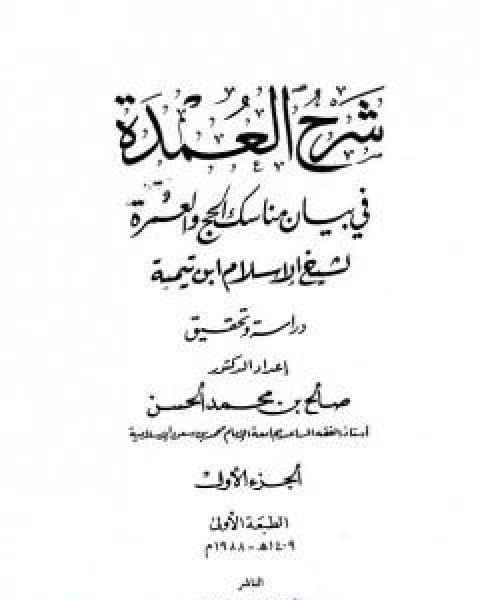 شرح العمدة
في بيان مناسك الحج والعمرة
لشيخ الإسلام ابن تيمية
دراسة وتحقيق
إعداد الدكتور
صالح بن محمد الحسن
أستاذ الفقه المساعد بجامعة الإمام محمد بن سعود الإسلامية
الجزء الأول
الطبعة الأولى
١٤٠٩هـ - ١٩٨٨م
الناشر